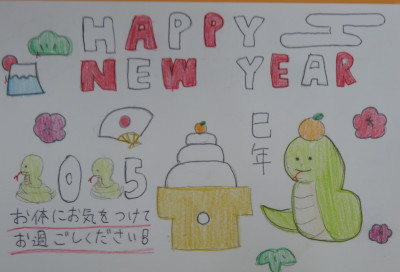 HAPPY
NEW YEAR
巳年
2025
お体にお気をつけて
お過ごしください